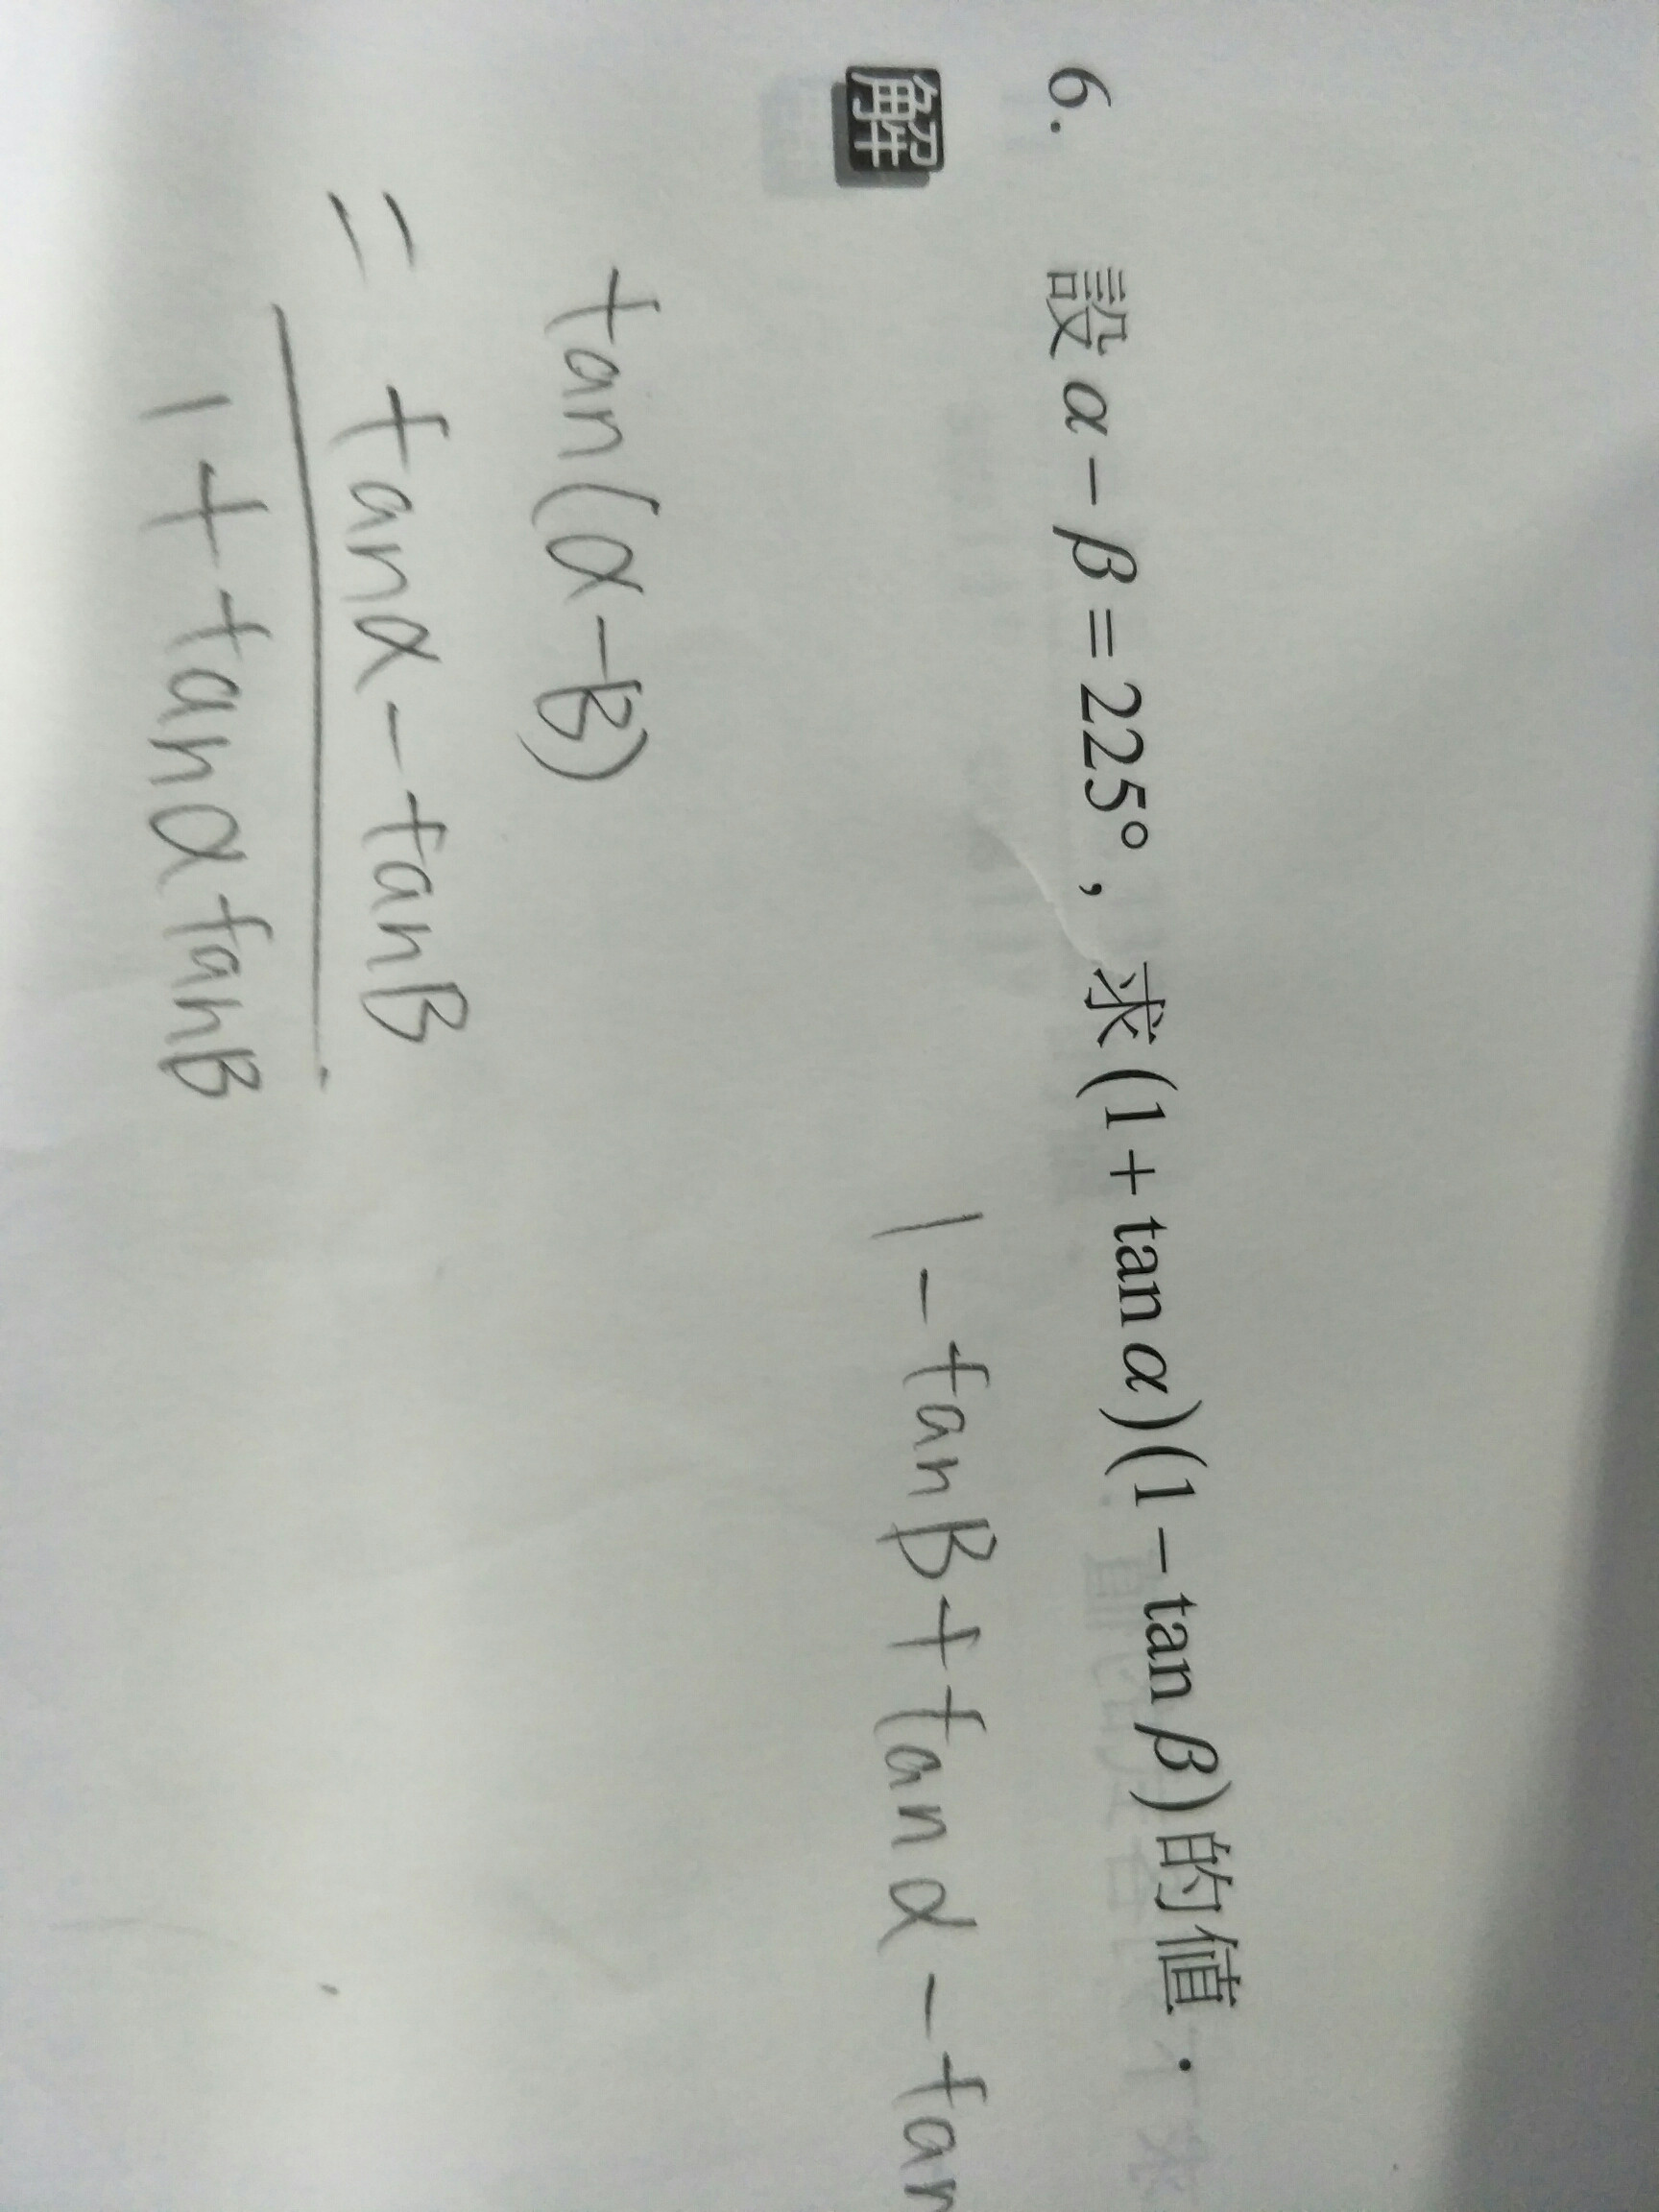 6. 設 α − β = 225°, 求 (1 + tan α)(1 − tan β) 的值.
解
1 − tanβ + tanα − tan
tan(α−β)
= tanα − tanβ
1 + tanα tanβ